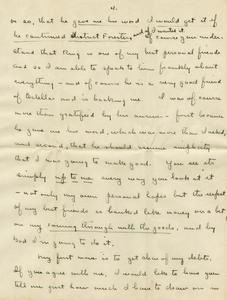 4.
or so, that he gave me his word I would get it if
he continued District Forester, and if I wanted it.
of course you under-
stand that Ring is one of my best personal friends
and so I am able to speak to him frankly about
everything - and of course he is a very good friend
of and is backing me. I was of course
more than gratified by his answer - first because
he gave me his word, which was more than I asked,
and second, that he should assume implicitly
that I was going to make good. You see it's
simply up to me every way you look at it
- not only my own personal hopes but the respect
of my best friends is banked like money on a bet,
on my coming through with the goods, and by
God I'm going to do it.
My first move is to get clear of my debts.
If you agree with me, I would like to have you
tell me just how much I have to draw on in